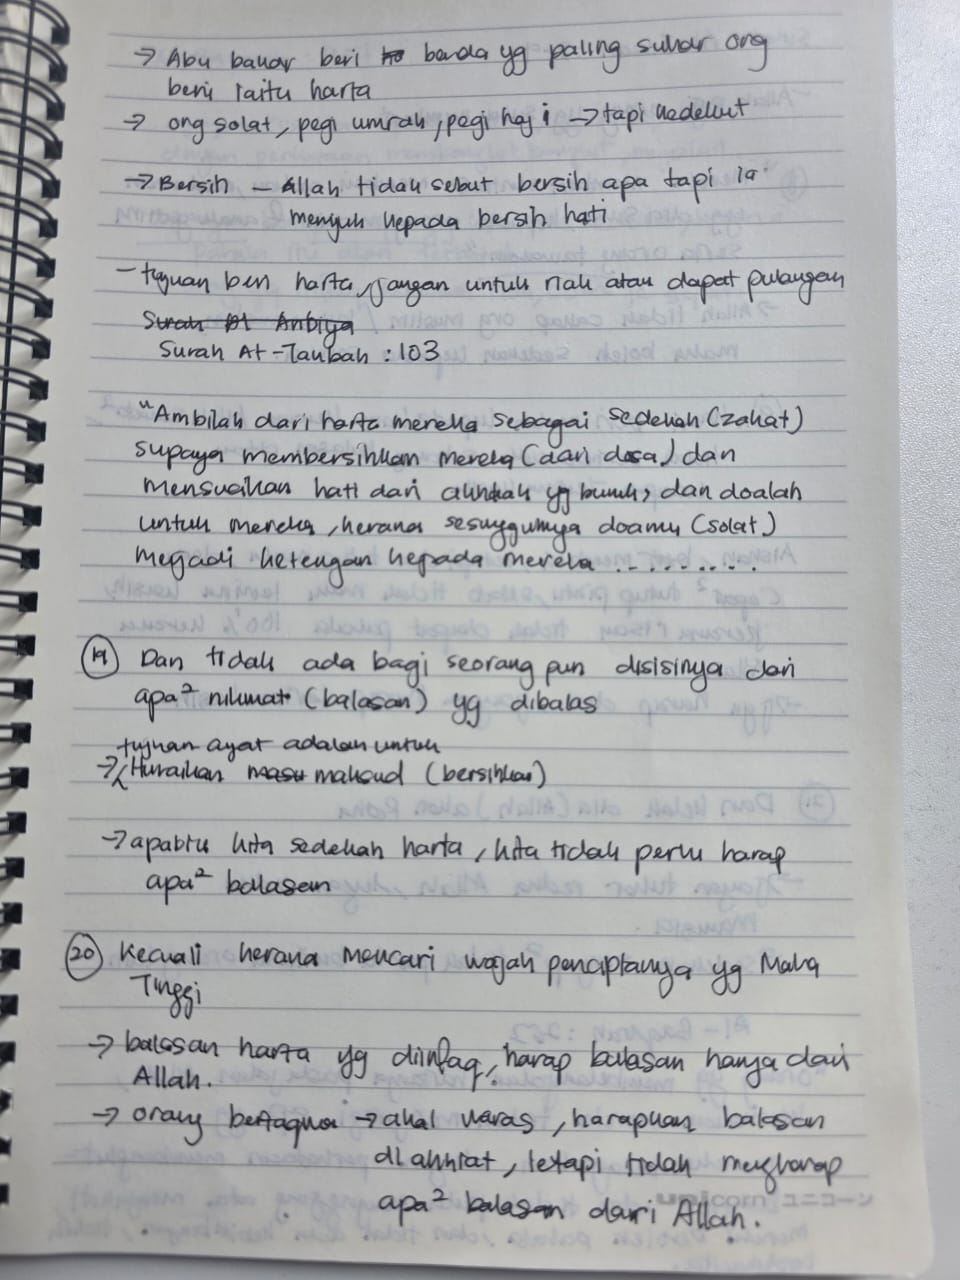 → Abu bakar beri benda yg paling sukar ong
beri iaitu harta
→ ong solat, pegi umrah, pegi haji → tapi kedekut
→ Bersih – Allah tidak sebut bersih apa tapi ia
menyuh kepada bersih hati
– tujuan beri harta, jangan untuk riak atau dapat pulangan
Surah Al Anbiya
Surah At-Taubah : 103
"Ambilah dari harta mereka sebagai sedekah (zakat)
supaya membersihkan mereka (dari dosa) dan
mensucikan hati dari akhlak yg buruk, dan doalah
untuk mereka, kerana sesungguhnya doamu (solat)
menjadi ketengan kepada mereka ..........
19 Dan tidak ada bagi seorang pun disisinya dari
apa² nikmat (balasan) yg dibalas
tujuan ayat adalah untuk
→ Huraikan maksud (bersihkan)
→ apabila kita sedekah harta, kita tidak perlu harap
apa² balasan
20 Kecuali kerana mencari wajah penciptanya yg Maha
Tinggi
→ balasan harta yg diinfaq, harap balasan hanya dari
Allah.
→ orang bertaqwa → akal waras, harapkan balasan
di akhirat, tetapi tidak mengharap
apa² balasan dari Allah.
unicorn ユニコーン